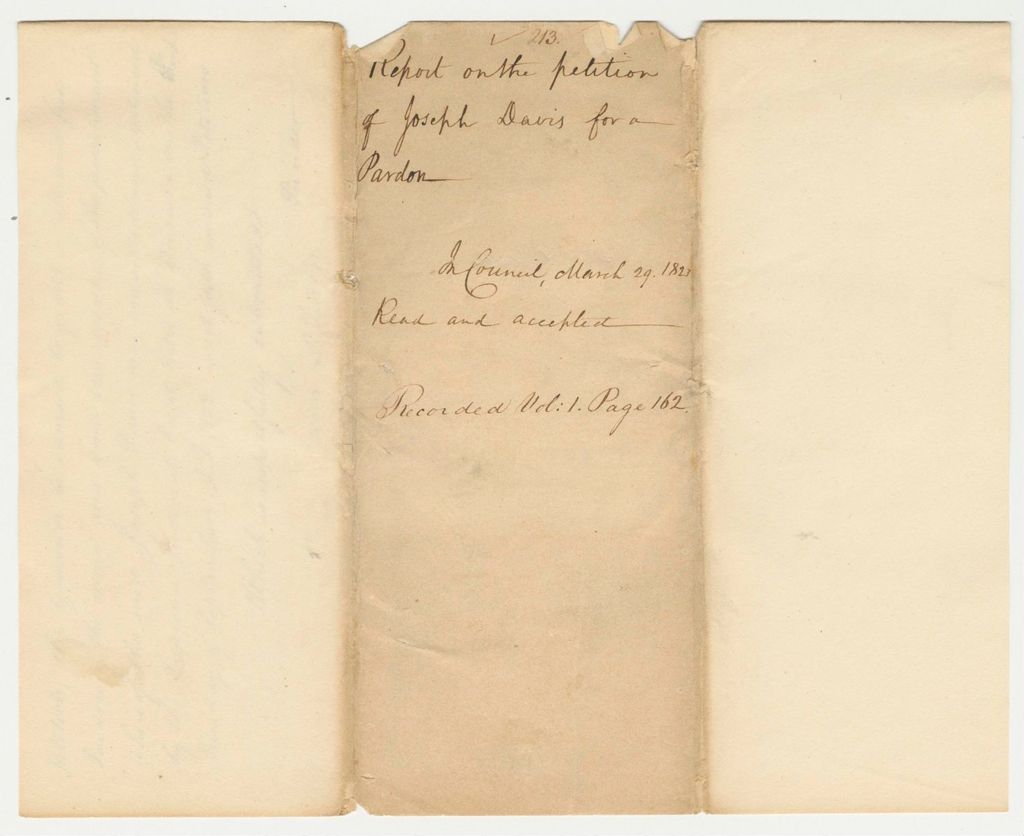 ✓ 213.
Report on the petition
of Joseph Davis for a
Pardon
In Council, March 29. 1823
Read and accepted
Recorded Vol: 1. Page 162.